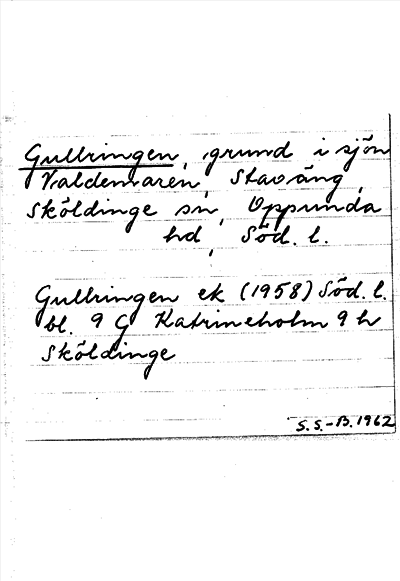 Gullringen, grund i sjön
Valdemaren, Staväng,
Sköldinge sn, Oppunda
hd, Söd. l.
Gullringen ek (1958) Söd. l.
bl. 9 G Katrineholm 9 h
Sköldinge
S. S.-B. 1962